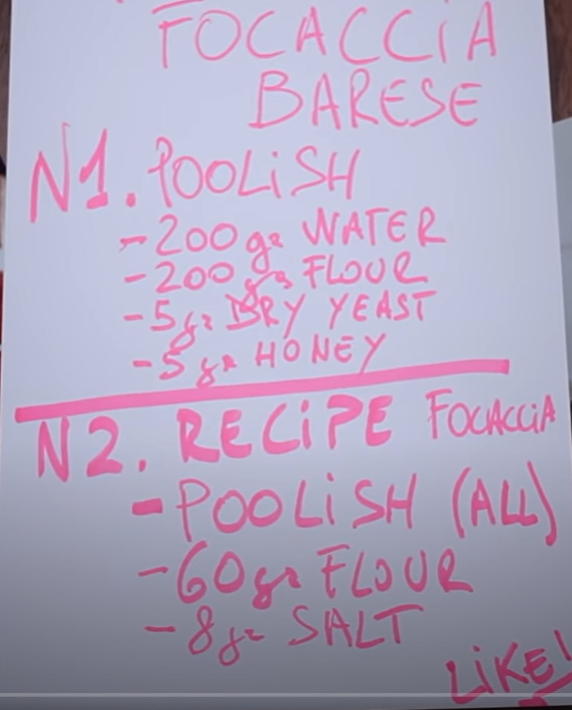 FOCACCIA
BARESE
N1. POOLISH
- 200 gr WATER
- 200 grs FLOUR
- 5 gr DRY YEAST
- 5 gr HONEY
N2. RECIPE FOCACCIA
- POOLISH (ALL)
- 60 gr FLOUR
- 8 gr SALT
LIKE!